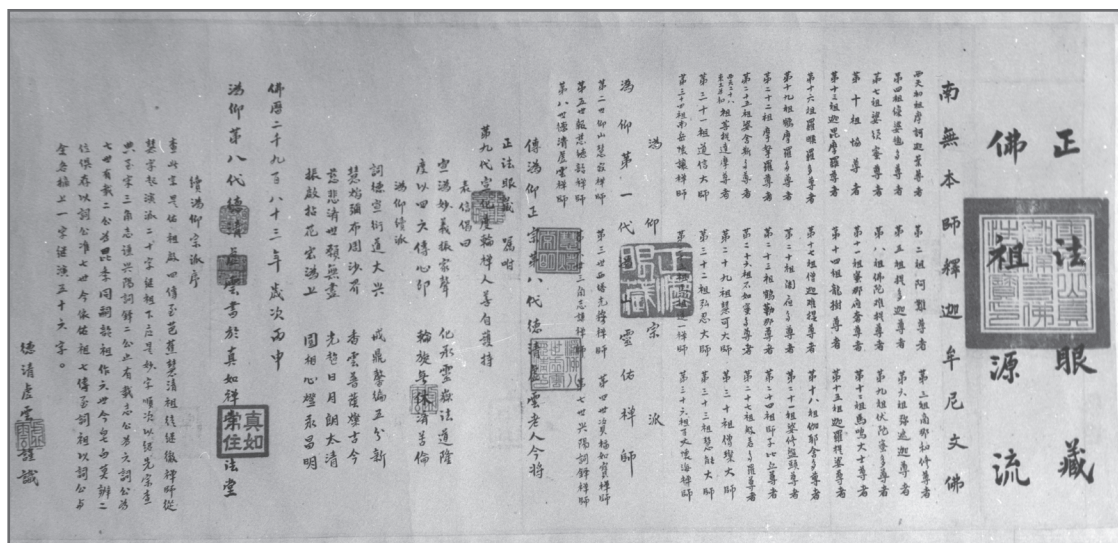 正法眼藏
佛祖源流
南無本師釋迦牟尼文佛
西天初祖摩訶迦葉尊者 第二祖阿難尊者 第三祖商那和修尊者
第四祖優婆毱多尊者 第五祖提多迦尊者 第六祖彌遮迦尊者
第七祖婆須蜜尊者 第八祖佛陀難提尊者 第九祖伏陀蜜多尊者
第十祖脇尊者 第十一祖富那夜奢尊者 第十二祖馬鳴大士尊者
第十三祖迦毘摩羅尊者 第十四祖龍樹尊者 第十五祖迦那提婆尊者
第十六祖羅睺羅多尊者 第十七祖僧迦難提尊者 第十八祖伽耶舍多尊者
第十九祖鳩摩羅多尊者 第二十祖闍夜多尊者 第二十一祖婆修盤頭尊者
第二十二祖摩拏羅尊者 第二十三祖鶴勒那尊者 第二十四祖師子比丘尊者
第二十五祖婆舍斯多尊者 第二十六祖不如蜜多尊者 第二十七祖般若多羅尊者
西天二十八東土初祖菩提達摩尊者 第二十九祖慧可大師 第三十祖僧璨大師
第三十一祖道信大師 第三十二祖弘忍大師 第三十三祖慧能大師
第三十四祖南岳懷讓禪師 道一禪師 第三十六祖百丈懷海禪師
溈仰宗派
溈仰第一代溈山靈佑禪師
第二世仰山慧寂禪師 第三世西塔光穆禪師 第四世資福如寶禪師
第五世報慈德韶禪師 三角志謙禪師 第七世興陽詞鐸禪師
第八世德清虛雲禪師
傳溈仰正宗第八代德清虛雲老人今將
正法眼藏 囑咐
第九代宣化度輪禪人善自護持
表信偈曰
宣溈妙義振家聲 化承靈嶽法道隆
度以四六傳心印 輪旋無休濟苦倫
溈仰續派
詞德宣衍道大興 戒鼎馨徧五分新
慧焰彌布周沙界 香雲普蔭燦古今
慈悲濟世願無盡 光昭日月朗太清
振啟拈花宏溈上 圓相心燈永昌明
佛曆二千九百八十三年歲次丙申
溈仰第八代德清虛雲書於真如禪寺法堂
真如常住
續溈仰宗派序
查此宣是佑祖啟四傳至芭蕉慧清祖後繼徹禪師從
慧字起演派二十字繼祖下亦是妙字順次以紹先宗查
典
七世有載二公
金
德清虛雲謹識